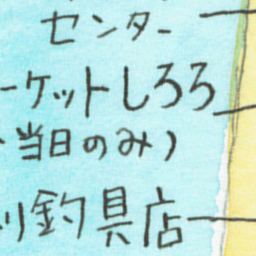 センター
ーケットしろろ
当日のみ)
釣具店